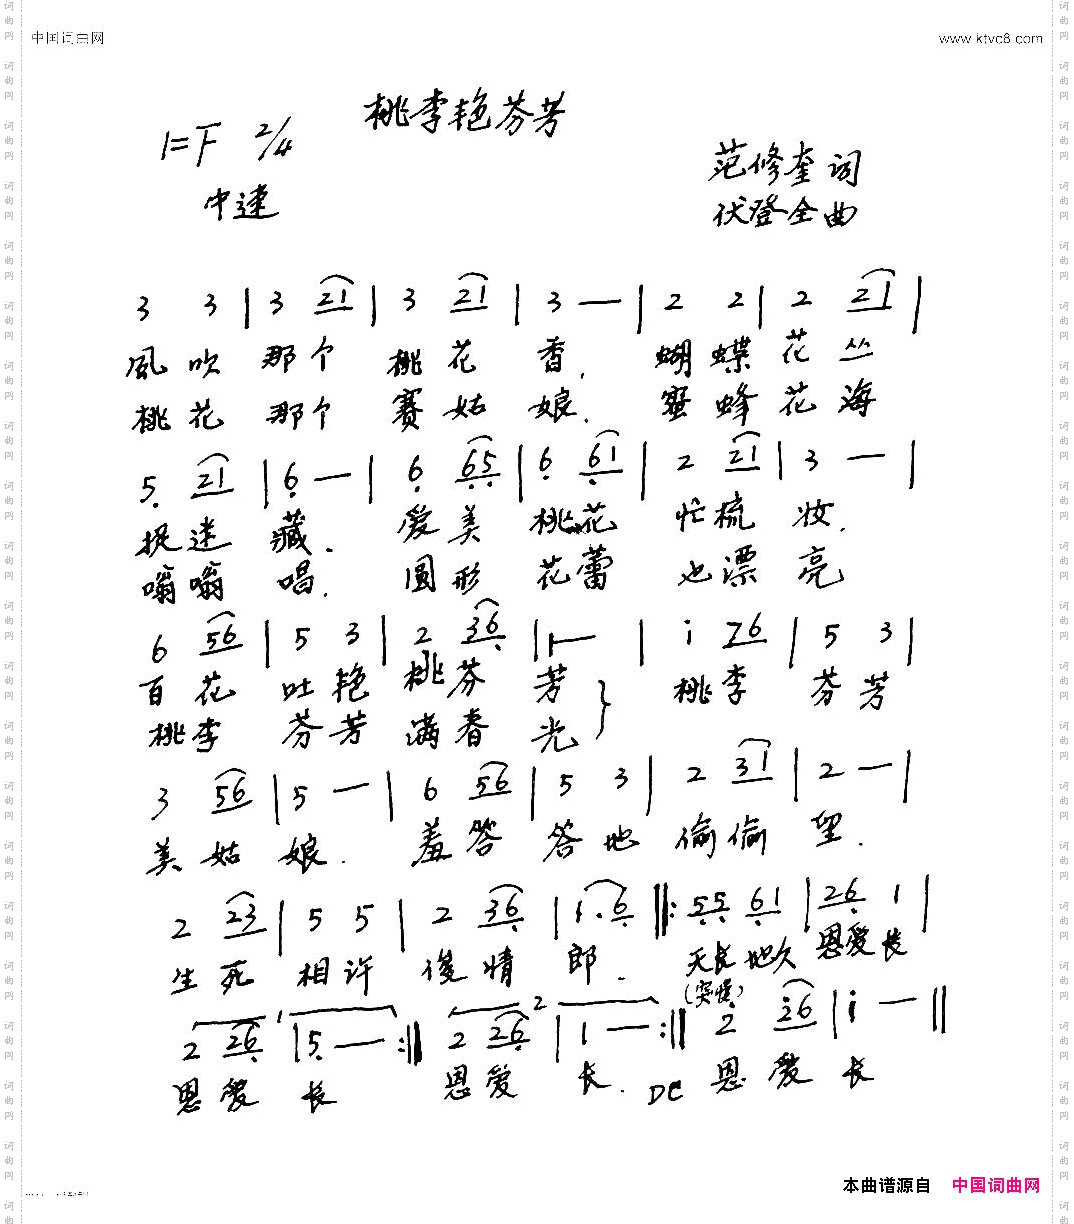 中国词曲网
www.ktvc8.com
桃李艳芬芳
1=F 2/4
中速
范修奎词
伏登全曲
3 3 | 3 21 | 3 21 | 3 — | 2 2 | 2 21 |
風吹 那个 桃花 香. 蝴蝶 花丛
桃花 那个 赛姑 娘. 蜜蜂 花海
5 21 | 6 — | 6 65 | 6 61 | 2 21 | 3 — |
捉迷 藏. 爱美 桃花 忙梳 妆.
嗡嗡 唱. 圆形 花蕾 也漂 亮
6 56 | 5 3 | 2 36 | 1 — | i 76 | 5 3 |
百花 吐艳 桃芬 芳 桃李 芬芳
桃李 芬芳 满春 光
3 56 | 5 — | 6 56 | 5 3 | 2 31 | 2 — |
美姑 娘. 羞答 答地 偷偷 望.
2 23 | 5 5 | 2 36 | 1. 6 ‖: 55 61 | 26 1 |
生死 相许 俊情 郎. 天长地久 恩爱长
(突慢)
2 26 | 5 — :‖ 2 26 | 1 — :‖ 2 i6 | i — ‖
恩爱 长 恩爱 长. DC 恩爱 长
本曲谱源自 中国词曲网